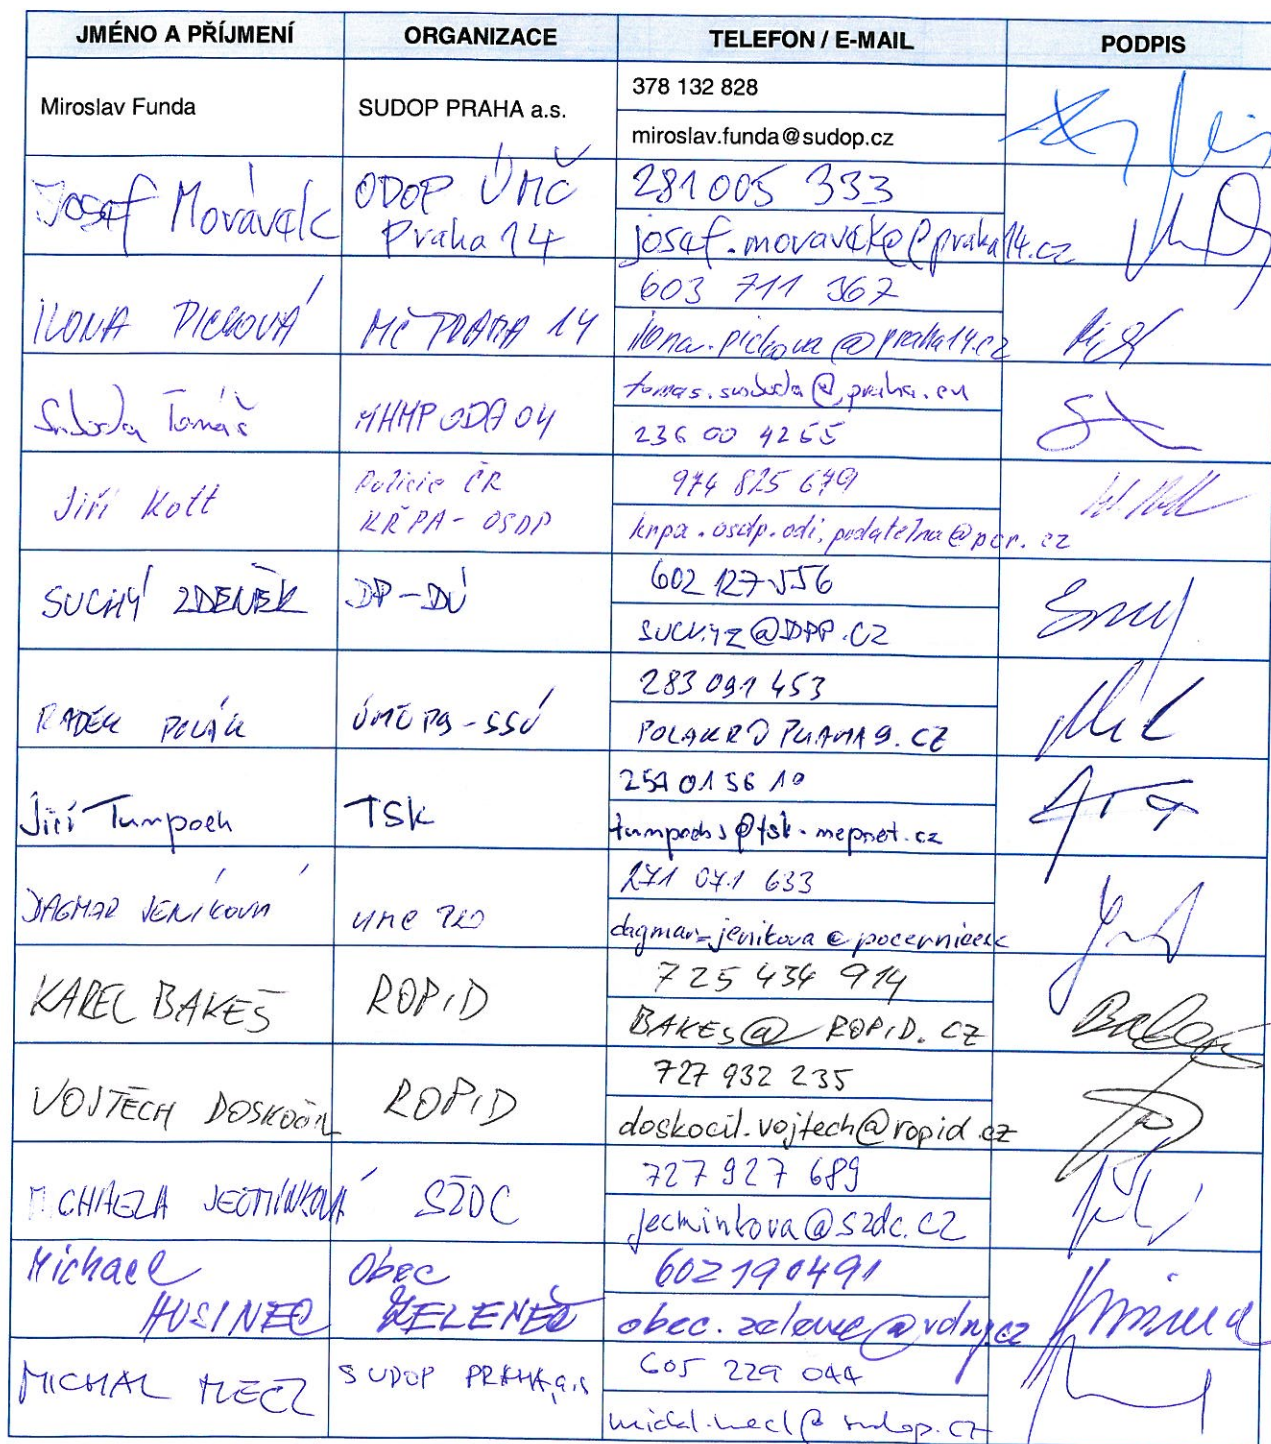 JMÉNO A PŘÍJMENÍ ORGANIZACE TELEFON / E-MAIL PODPIS
Miroslav Funda SUDOP PRAHA a.s. 378 132 828
miroslav.funda@sudop.cz
Josef Moravek ODOP ÚMČ 281 005 333
Praha 14 josef.moravek@praha14.cz
ILONA PICKOVÁ MČ PRAHA 14 603 711 367
ilona.pickova@praha14.cz
Svoboda Tomáš MHMP ODA 04 tomas.svoboda@praha.eu
236 00 4255
Jiří Kott Policie ČR 974 825 679
KŘPA - OSDP krpa.osdp.odi.podatelna@pcr.cz
SUCHÝ ZDENĚK DP-DÚ 602 127 556
SUCHYZ@DPP.CZ
RADEK POLÁK 283 091 453
POLAKR@PRAHA9.CZ
Jiří Tumpach TSK
DAGMAR JENÍKOVÁ 271 071 633
KAREL BAKEŠ ROPID 725 434 914
BAKES@ROPID.CZ
VOJTĚCH DOSKOČIL ROPID 727 932 235
doskocil.vojtech@ropid.cz
MICHAELA JEČMÍNKOVÁ SŽDC 727 927 689
jecminkova@szdc.cz
Michael Obec 602190491
HUSINEC ZELENEČ
MICHAL MECL SUDOP PRAHA a.s. 605 229 044
michal.mecl@sudop.cz